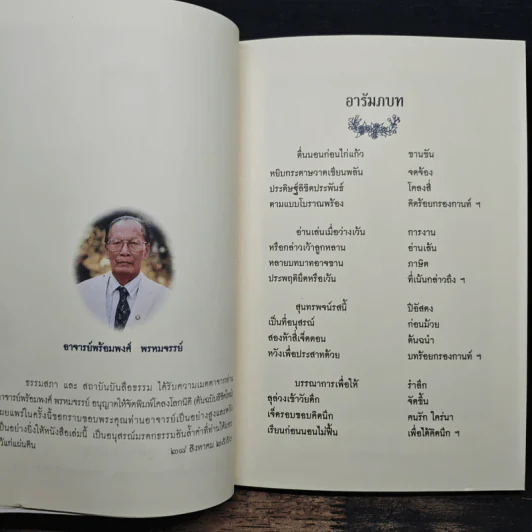 อาจารย์พร้อมพงศ์ พรหมจรรย์
ธรรมสภา และ สถาบันบันลือธรรม ได้รับความเมตตาจากท่าน
อาจารย์พร้อมพงศ์ พรหมจรรย์ อนุญาตให้จัดพิมพ์โคลงโลกนิติ
เผยแพร่ในครั้งนี้ขอกราบขอบพระคุณท่านอาจารย์เป็นอย่างสูง
เป็นอย่างยิ่งให้หนังสือเล่มนี้ เป็นอนุสรณ์มรดกธรรมอันล้ำค่าที่ท่านได้
ไว้แก่แผ่นดิน
อารัมภบท
ตื่นนอนก่อนไก่แก้ว ขานขัน
หยิบกระดาษวาดเขียนพลัน จดจ้อง
ประดิษฐ์ลิขิตประพันธ์ โคลงสี่
ตามแบบโบราณพร้อง คิดร้อยกรองกานท์ ฯ
อ่านเล่นเมื่อว่างเว้น การงาน
หรือกล่าวเก้าลูกหลาน อ่านเล้น
หลายบทบาทอาจขาน ภาษิต
ประพฤติยึดหรือเว้น ที่เน้นกล่าวถึง ฯ
สุนทรพจน์รสนี้ ปีอัสดง
เป็นที่อนุสรณ์ ก่อนม้วย
สองห้าสี่เจ็ดตอน ดับฉนำ
หวังเพื่อประสาทด้วย บทร้อยกรองกานท์ ฯ
บรรณาการเพื่อให้ รำลึก
ลุล่วงเข้าวัยดึก จัดขึ้น
เจ็ดรอบขอบคิดนึก คนรัก ใคร่นา
เรียนก่อนนอนไม่ฟื้น เพื่อได้คิดนึก ฯ